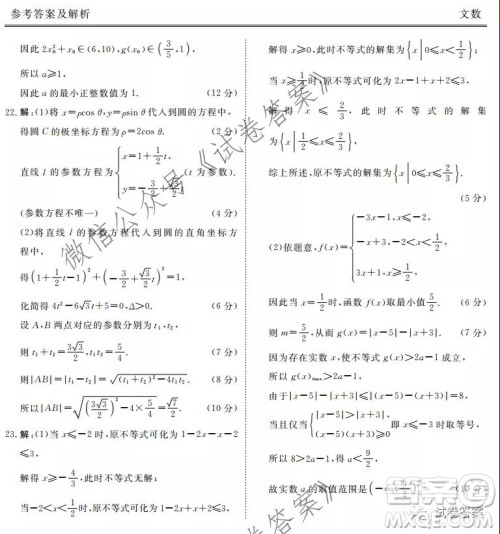 参考答案及解析
文数
因此 2x₀²+x₀∈(6,10), g(x₀)∈(3/5,1),
所以 a≥1,
因此 a 的最小正整数值为 1. (12 分)
22.解:(1)将 x=ρcosθ,y=ρsinθ 代入到圆的方程中,
得圆 C 的极坐标方程为 ρ=2cosθ. (2 分)
直线 l 的参数方程为{x=1+1/2 t, y=-2+√3/2 t (t 为参数).
(参数方程不唯一) (4 分)
(2)将直线 l 的参数方程代入到圆的直角坐标方
程中,
得(1+1/2 t-1)²+(-2+√3/2 t)²
化简得 4t²-6√3t+5=0,Δ>0. (6 分)
设 A,B 两点对应的参数分别为 t₁,t₂,
则 t₁+t₂=3√3/2,t₁t₂=5/4. (7 分)
则|AB|=|t₁-t₂|=√((t₁+t₂)²-4t₁t₂). (8 分)
所以|AB|=√((3√3/2)²-4×5/4)=√7/2. (10 分)
23.解:(1)当 x≤-2 时,原不等式可化为 1-2x-x-2
≤3,
解得 x≥-4/3,此时不等式无解;
当-2<x<1/2 时,原不等式可化为 1-2x+x+2≤3,
解得 x≥0,此时不等式的解集为{x|0≤x<1/2};
当 x≥1/2 时,原不等式可化为 2x-1+x+2≤3,
解得 x≤2/3,此时不等式的解集
为{x|1/2≤x≤2/3},
综上所述,原不等式的解集为{x|0≤x≤2/3}.
(5 分)
(2)依题意,f(x)={-3x-1,x≤-2, -x+3,-2<x<1/2, 3x+1,x≥1/2,
因此当 x=1/2 时,函数 f(x)取最小值 5/2. (6 分)
则 m=5/2,从而 g(x)=|x-5|-|x+3|. (7 分)
因为存在实数 x,使不等式 g(x)>2a-1 成立,
所以 g(x)max>2a-1. (8 分)
由于|x-5|-|x+3|≤|(x-5)-(x+3)|=8,
当且仅当{|x-5|>|x+3|, (x-5)(x+3)≥0 时取等号,
所以 8>2a-1,得 a<9/2.
故实数 a 的取值范围是
微信公众号《试卷答案》
试卷答案》
试卷答案
答案圈